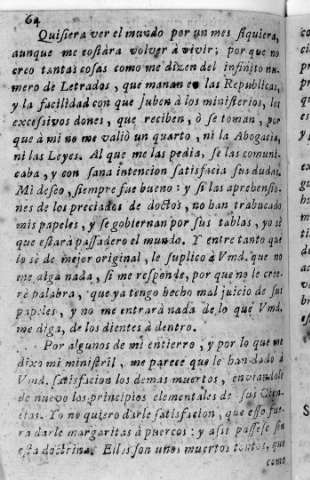 64
Quisiera ver el mundo por un mes siquiera,
aunque me costàra volver à vivir; porque no
creo tantas cosas como me dizen del infinito nu-
mero de Letrados, que manan en las Republicas,
y la facilidad con que suben à los ministerios, los
excessivos dones, que reciben, ò se toman, por
que à mi no me valiò un quarto, ni la Abogacia,
ni las Leyes. Al que me las pedia, se las comuni-
caba, y con sana intencion satisfacia sus dudas.
Mi deseo, siempre fue bueno: y si las aprehensio-
nes de los preciados de doctos, no han trabucado
mis papeles, y se gobiernan por sus tablas, yo sè
que estarà passadero el mundo. Y entre tanto que
lo sè de mejor original, le suplico à Vmd. que no
me diga nada, si me responde, porque no le cree-
rè palabra, que ya tengo hecho mal juicio de sus
papeles, y no me entrarà nada de lo que Vmd.
me diga, de los dientes à dentro.
Por algunos de mi entierro, y por lo que me
dixo mi ministril, me parece que le han dado à
Vmd. satisfacion los demas muertos, enviandole
de nuevo los principios elementales de sus Cien-
cias. Yo no quiero darle satisfacion, que esso fue-
ra darle margaritas à puercos: y assi passese sin
esta doctrina. Ellos son unos muertos tontos, que
como